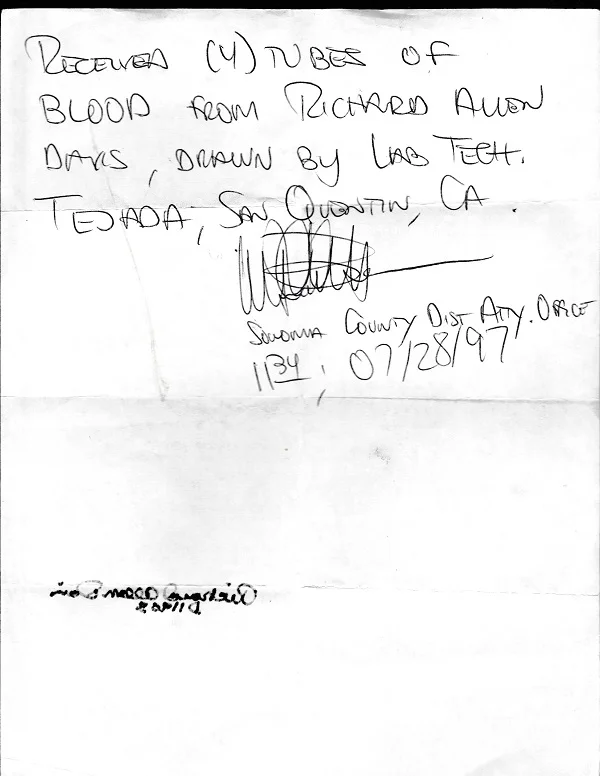 RECEIVED (4) TUBES OF
BLOOD FROM RICHARD ALLEN
DAVIS, DRAWN BY LAB TECH.
TEJADA, SAN QUENTIN, CA.
SONOMA COUNTY DIST ATTY. OFFICE
1134, 07/28/97
Richard Allen Davis